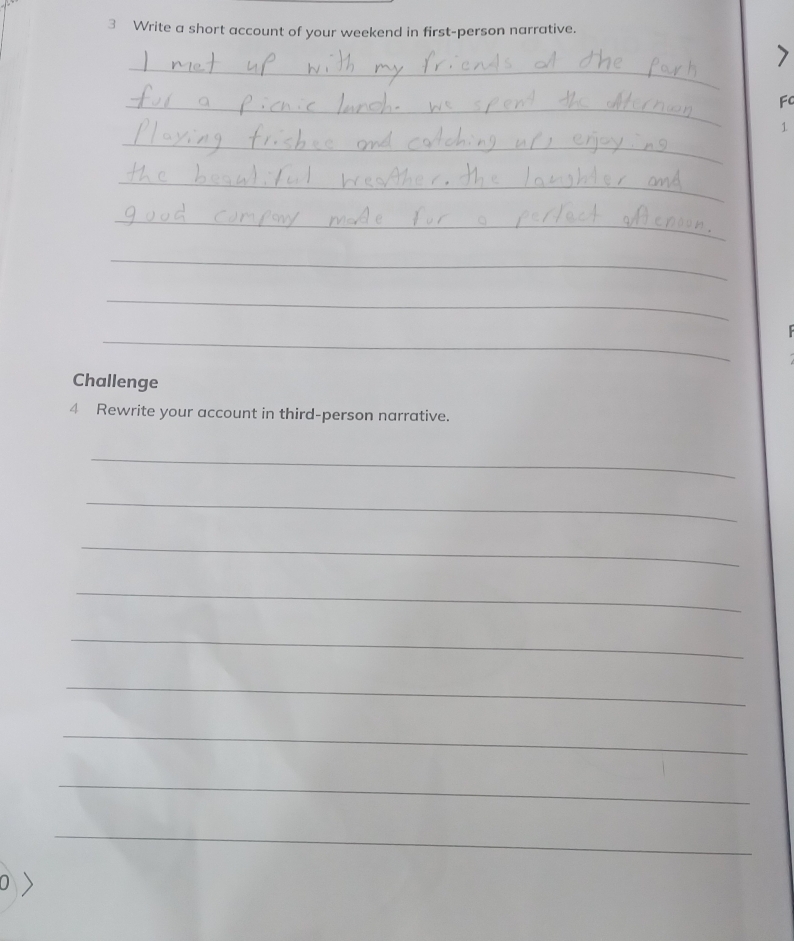 3 Write a short account of your weekend in first-person narrative.
I met up with my friends at the park
for a picnic lunch. we spent the afternoon
Playing frisbee and catching up, enjoying
the beautiful weather. the laughter and
good company made for a perfect afternoon.
Challenge
4 Rewrite your account in third-person narrative.
Fo
1